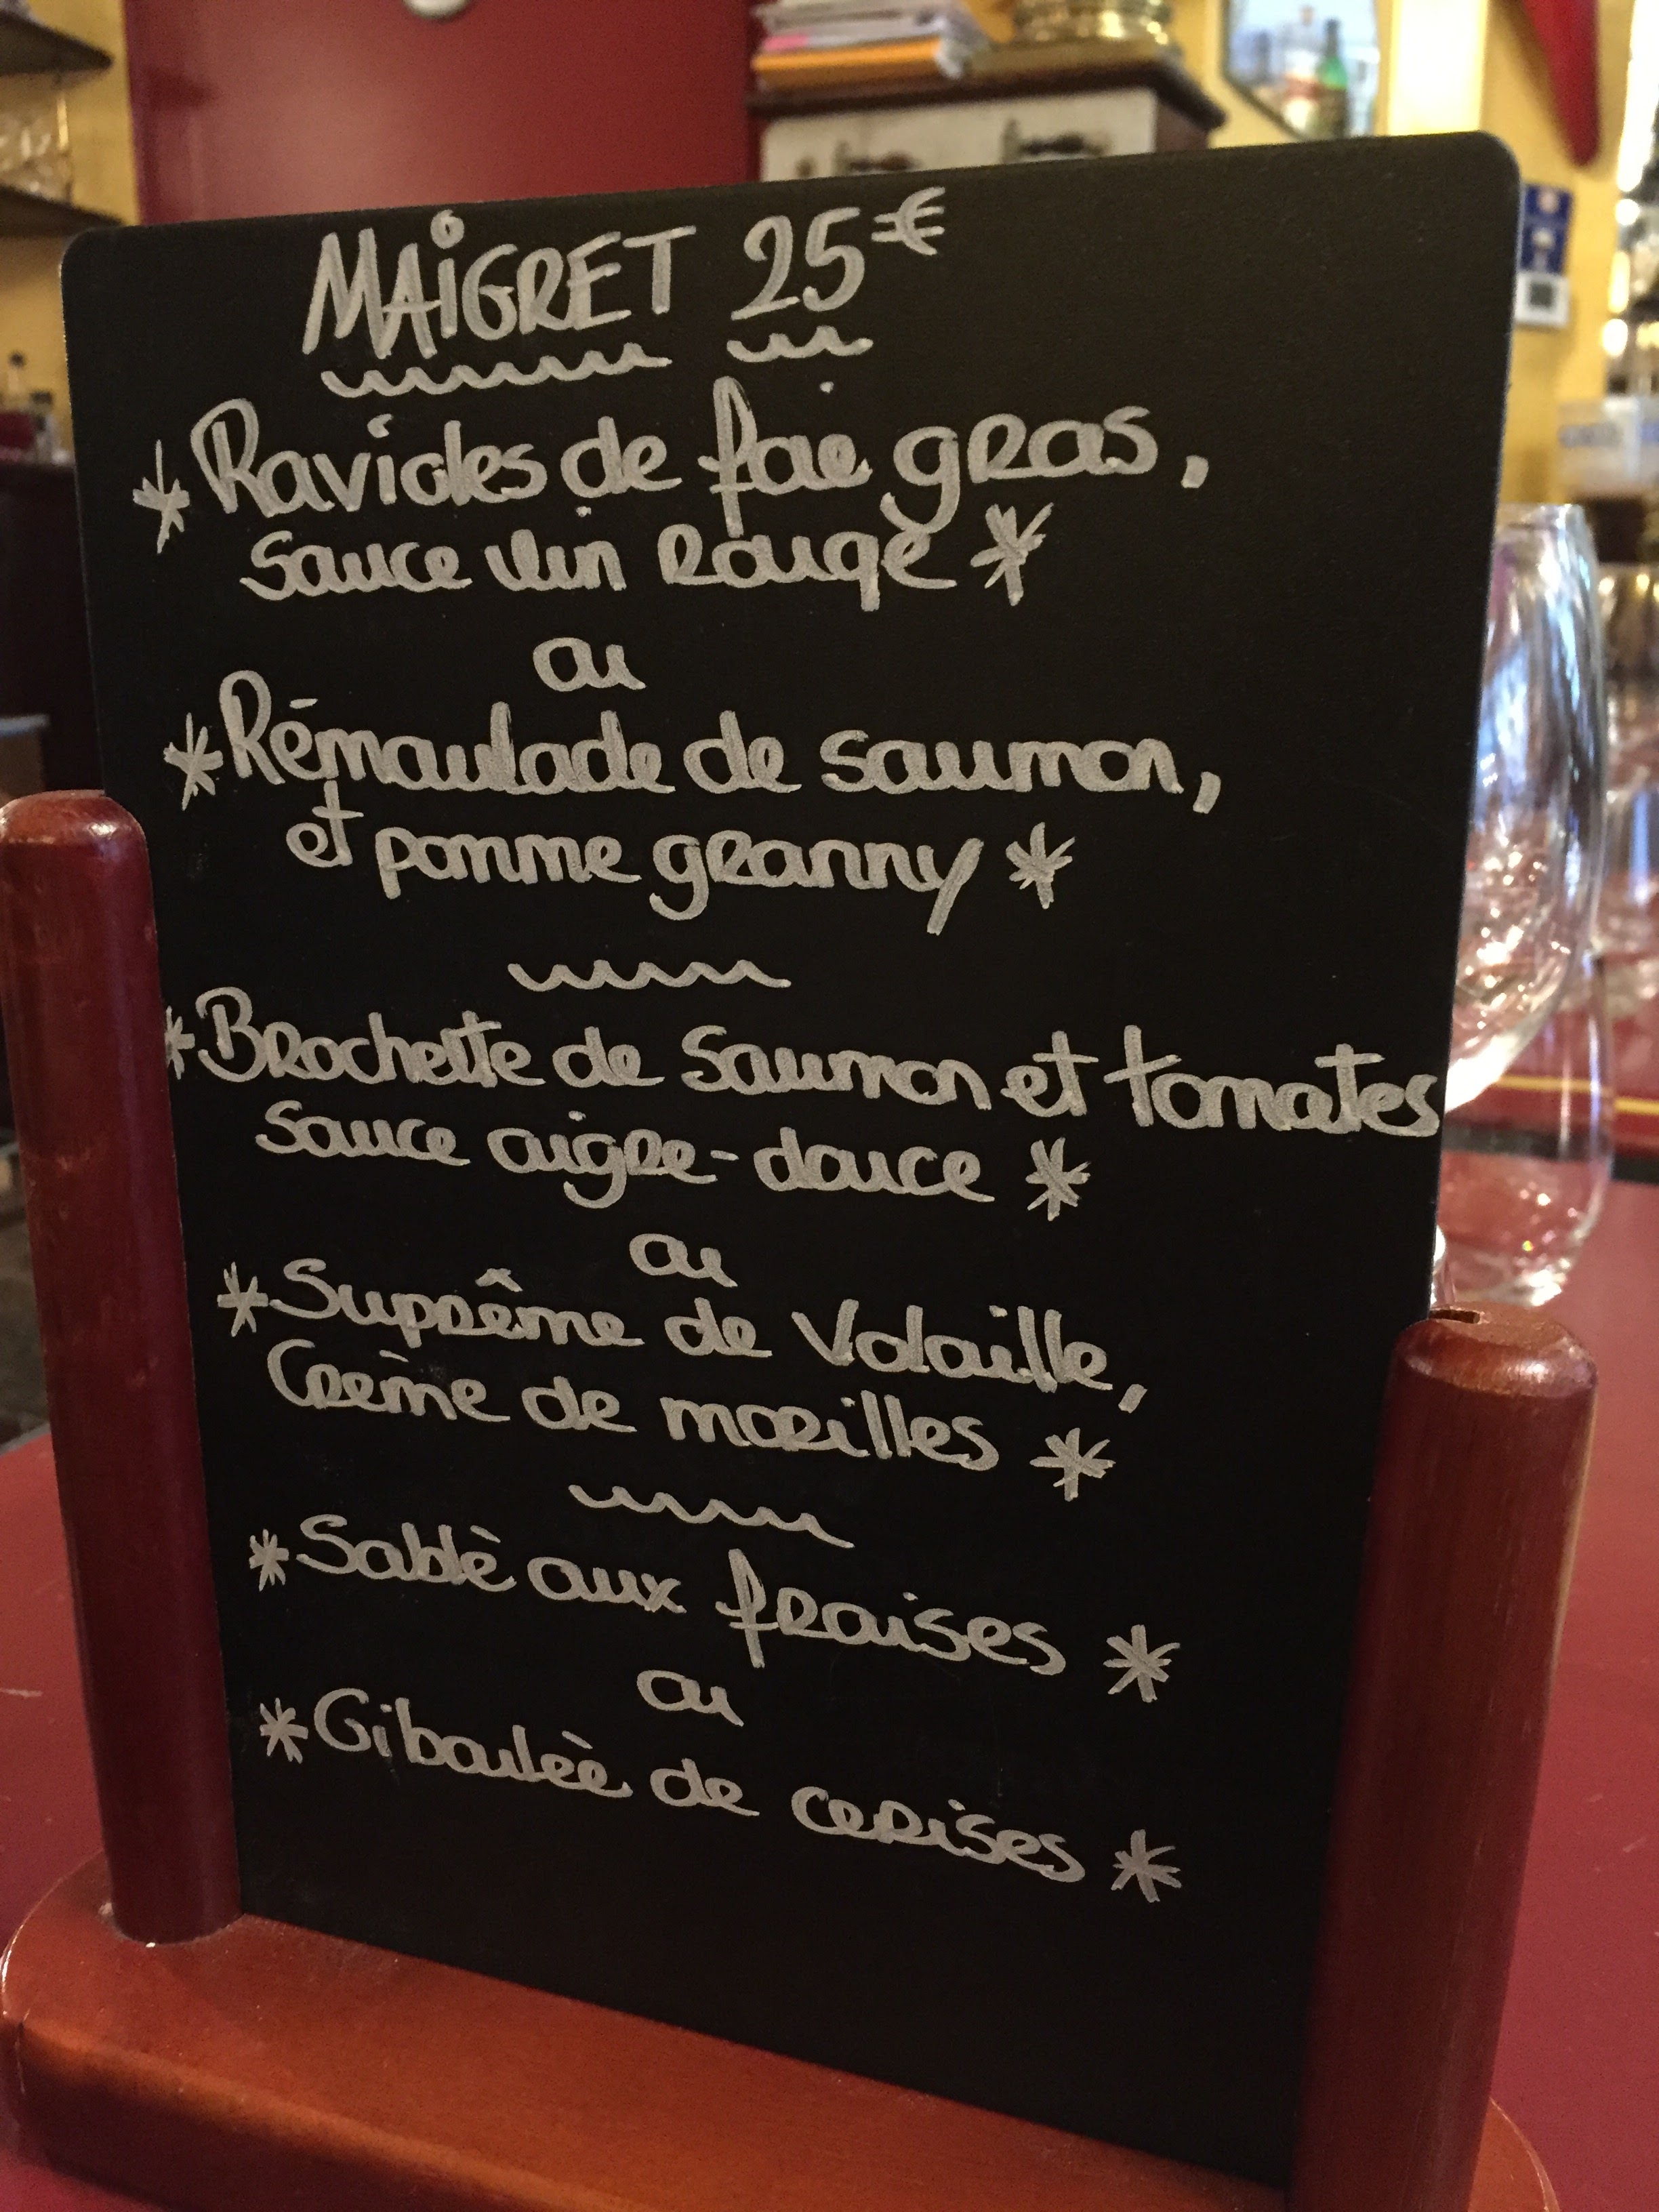 MAiGRET 25€
*Ravioles de foie gras,
sauce vin rouge *
ou
*Rémoulade de saumon,
et pomme granny *
*Brochette de saumon et tomates
sauce aigre-douce *
ou
*Suprême de Volaille,
Crème de morilles *
*Sablè aux fraises *
ou
*Giboulèe de cerises *